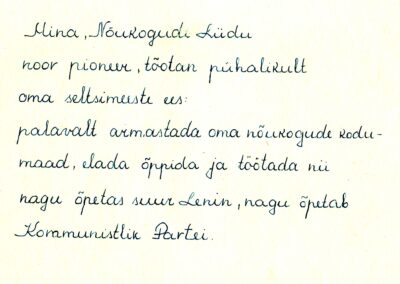 Mina, Nõukogude Liidu
noor pioneer, tõotan pühalikult
oma seltsimeeste ees:
palavalt armastada oma nõukogude kodu-
maad, elada õppida ja töötada nii
nagu õpetas suur Lenin, nagu õpetab
Kommunistlik Partei.